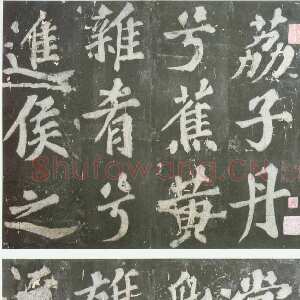 荔子丹
兮蕉黄
雜肴兮
進侯之
Shufawang.CN